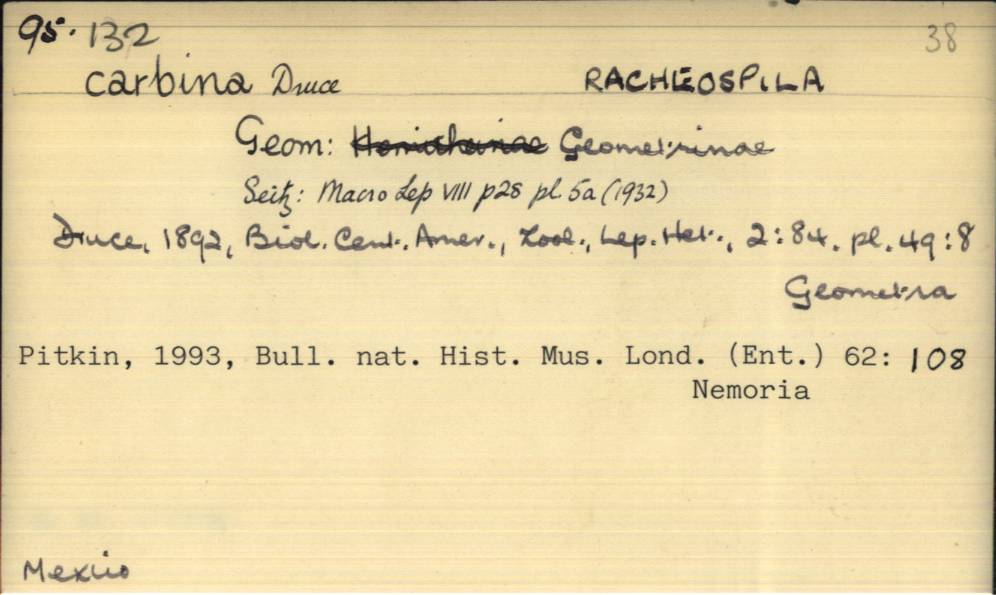 95.132 38
carbina Druce RACHEOSPILA
Geom: Hemitheinae Geometrinae
Seitz: Macro Lep VIII p28 pl 5a (1932)
Druce, 1892, Biol. Cent. Amer., Zool., Lep. Het., 2:84. pl. 49:8
Geometra
Pitkin, 1993, Bull. nat. Hist. Mus. Lond. (Ent.) 62: 108
Nemoria
Mexico